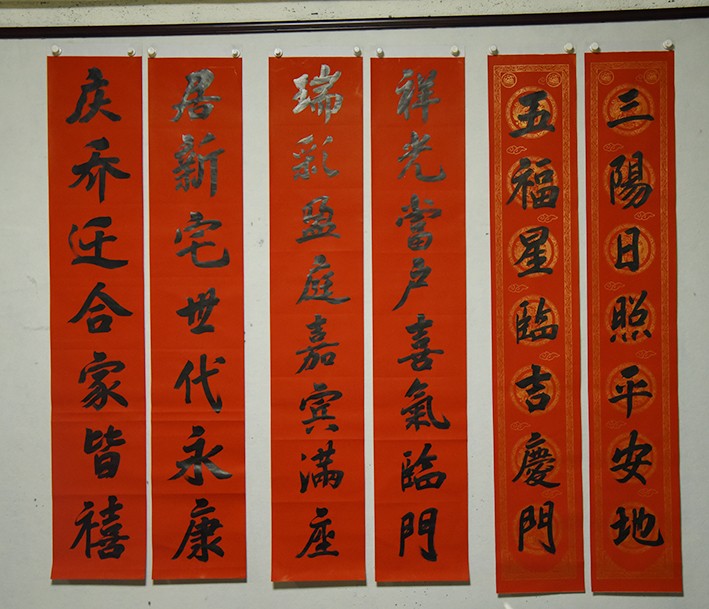 三陽日照平安地
五福星臨吉慶門
祥光當户喜氣臨門
瑞彩盈庭嘉宾满座
居新宅世代永康
庆乔迁合家皆禧